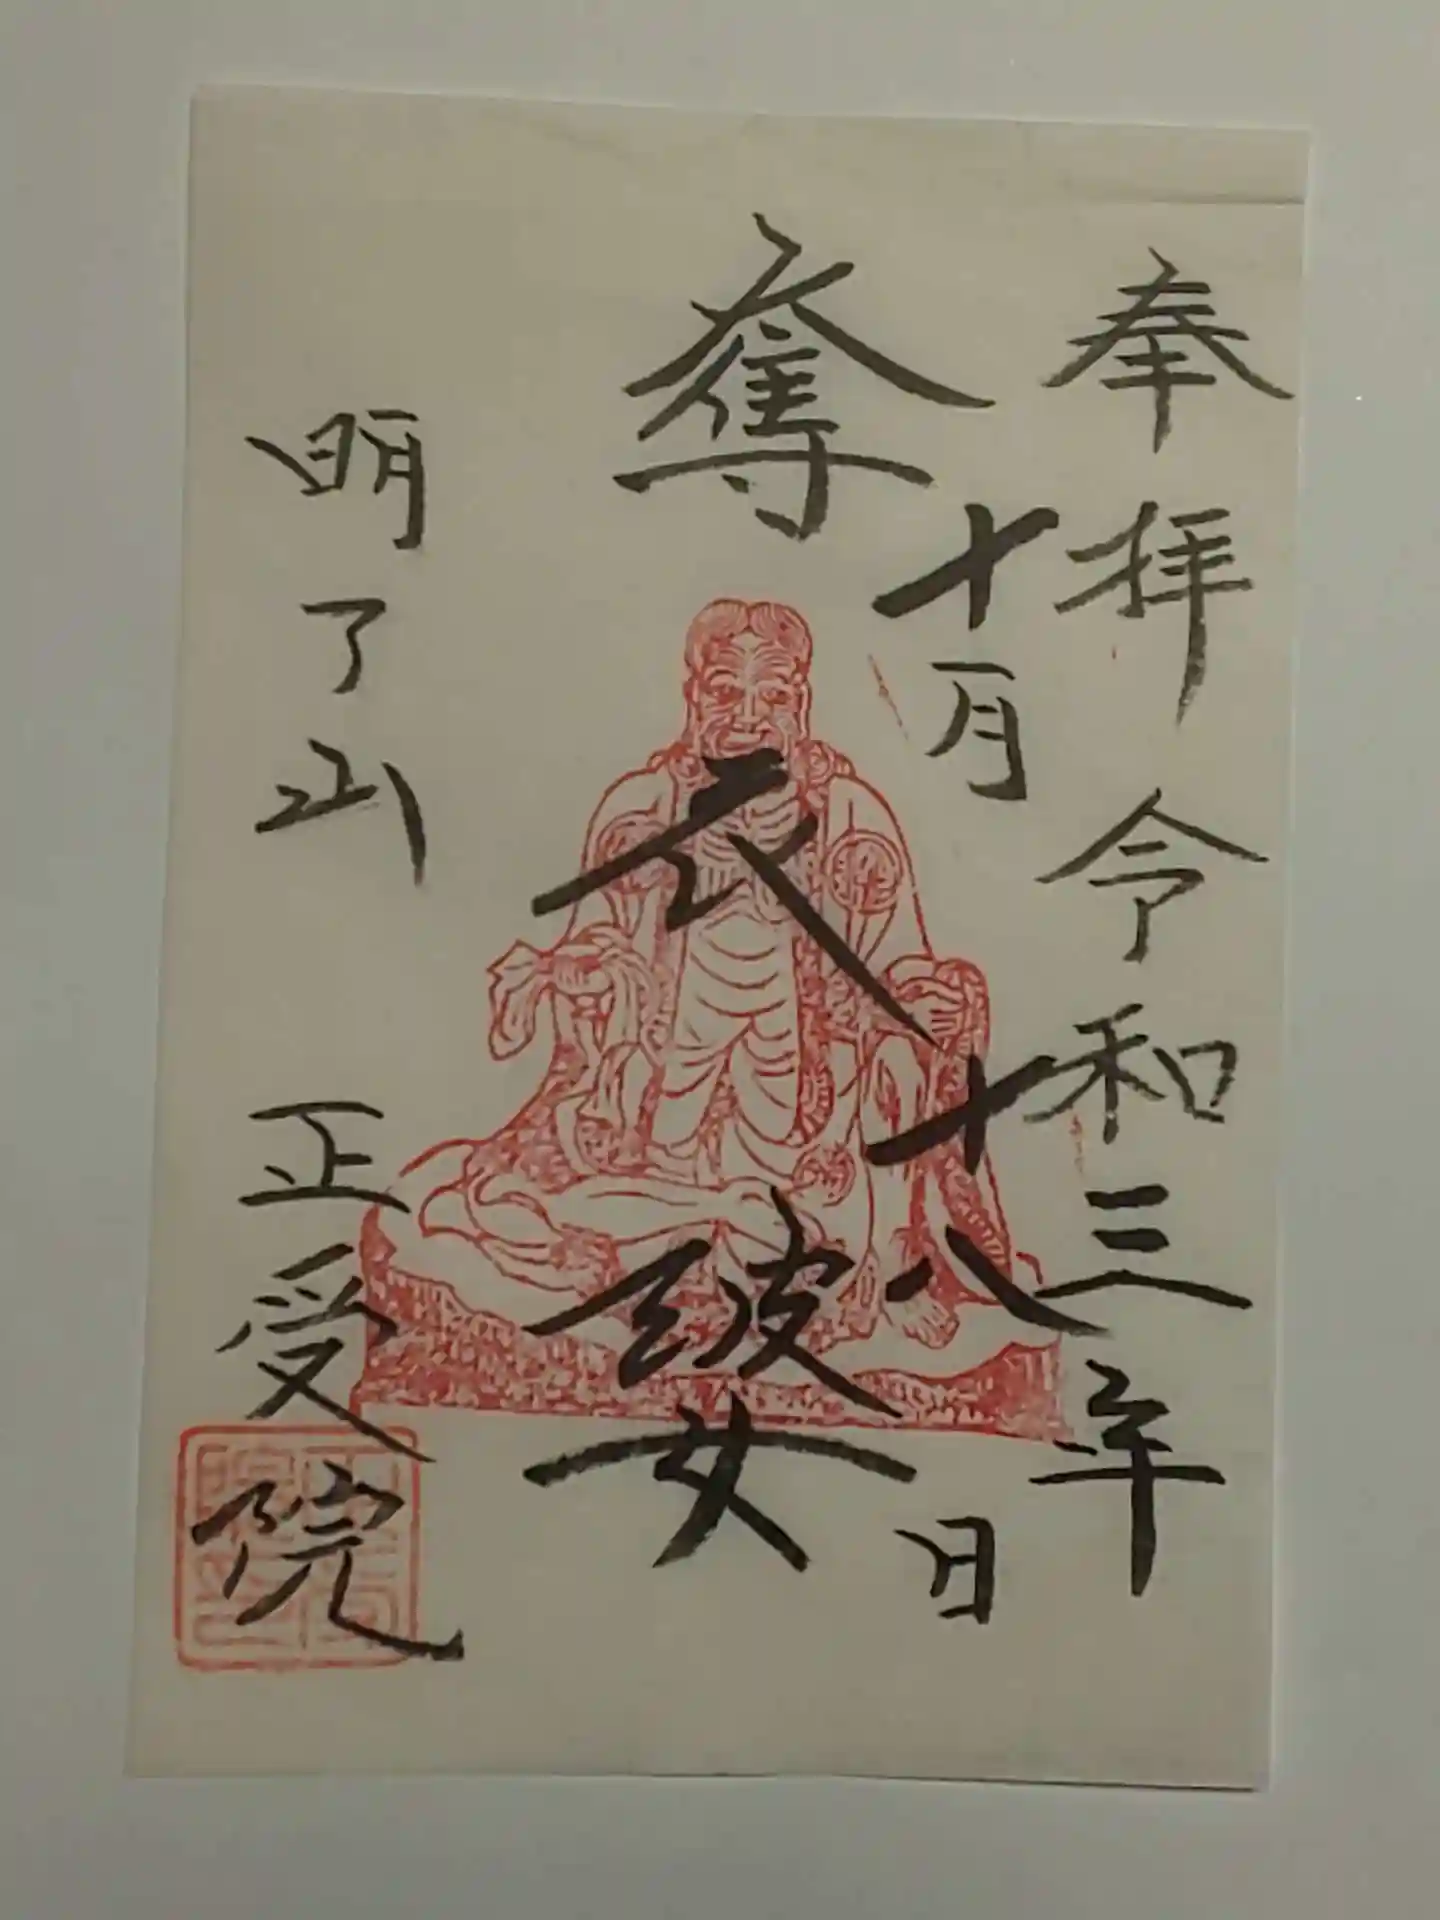 奉拝 令和三年
十一月十八日
奪衣婆
明了山 正受院